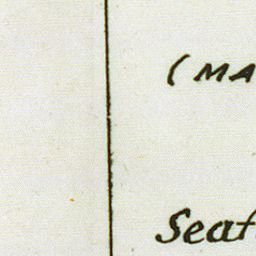 (MA
Seat